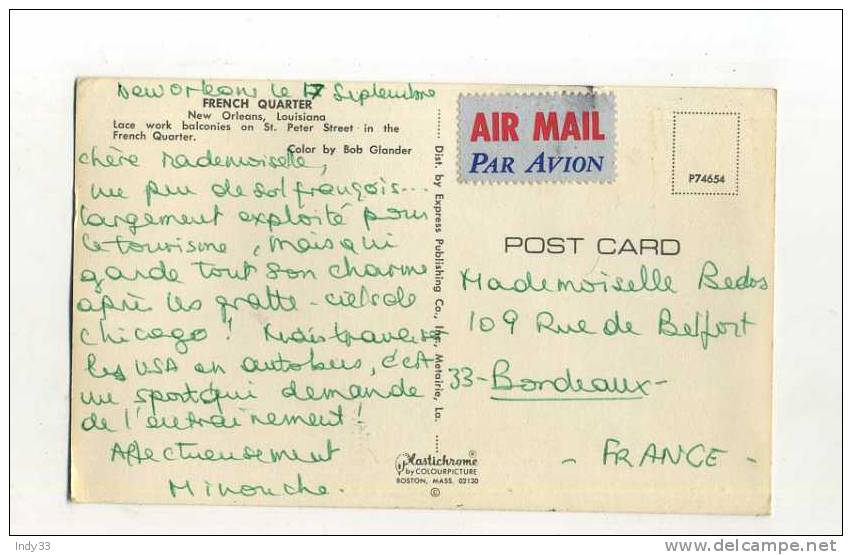 New Orleans le 17 Septembre
FRENCH QUARTER
New Orleans, Louisiana
Lace work balconies on St. Peter Street in the
French Quarter.
Color by Bob Glander
Chère Mademoiselle,
un peu de sol français...
largement exploité pour
le tourisme, mais qui
garde tout son charme
après les gratte-ciels de
chicago! Mais traverser
les USA en autobus, c'est
un sport qui demande
de l'entrainement!
Affectueusement
Minouche.
Dist. by Express Publishing Co., Inc., Metairie, La.
Plastichrome ®
by COLOURPICTURE
BOSTON, MASS. 02130
©
AIR MAIL
PAR AVION
P74654
POST CARD
Mademoiselle Bedos
109 Rue de Belfort
33-Bordeaux-
- FRANCE -
Indy33
www.delcampe.net